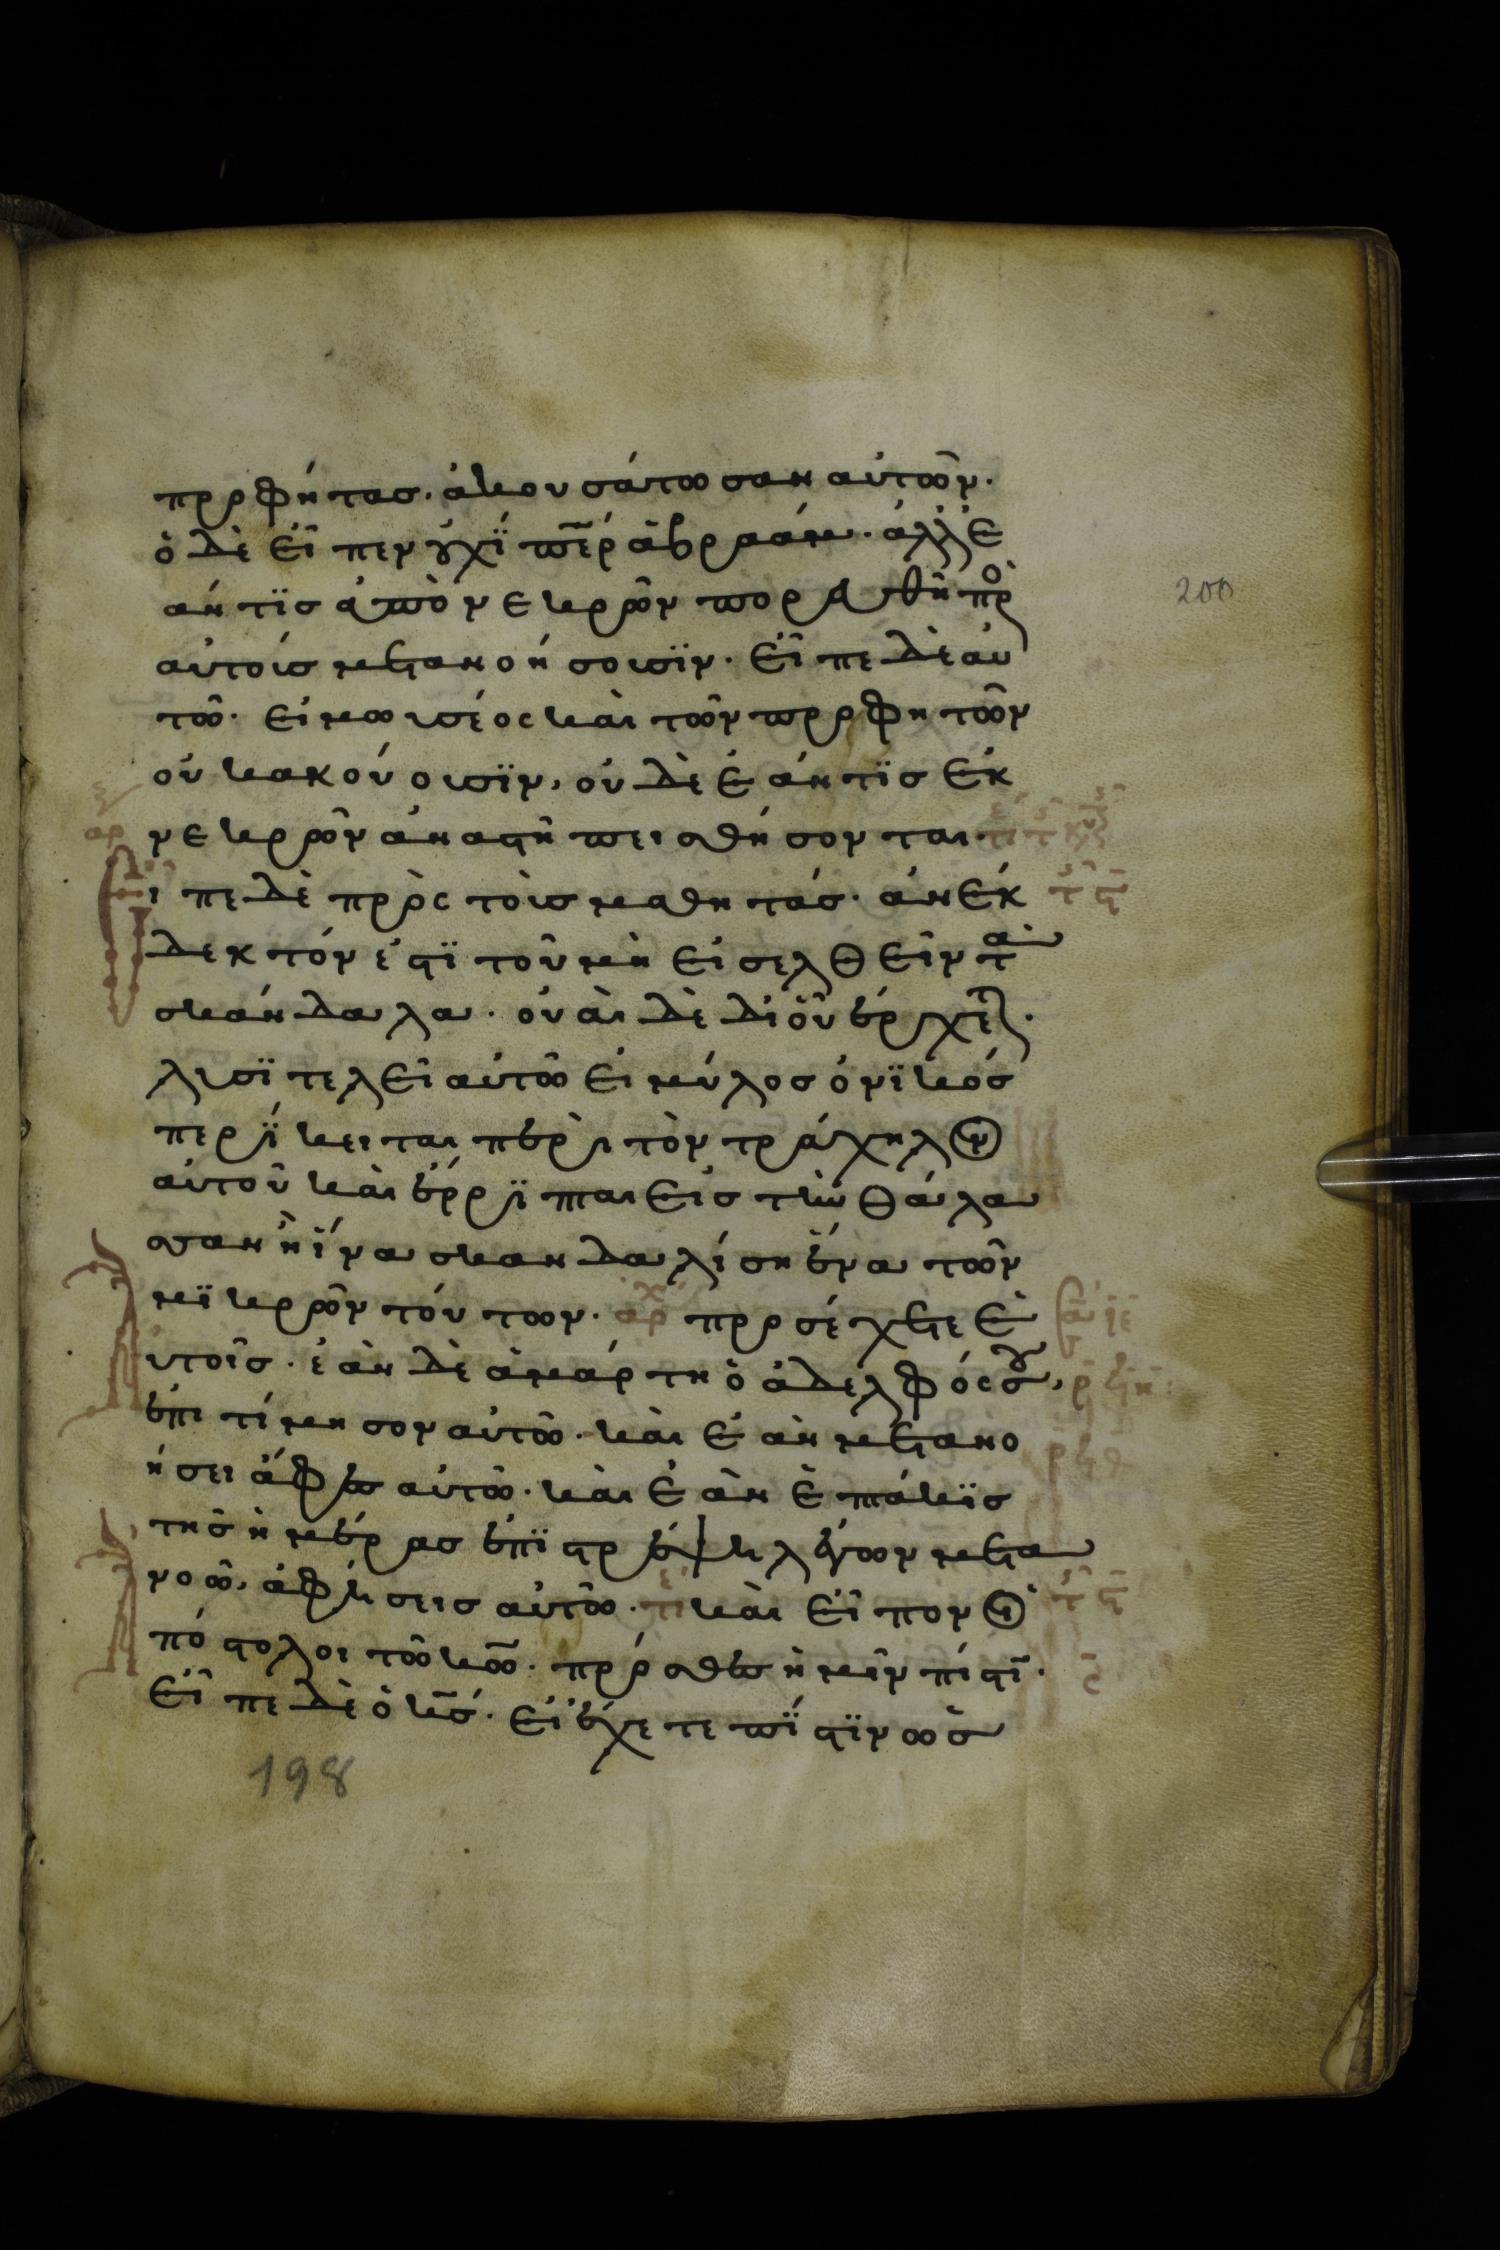 προφήτας. ἀκουσάτωσαν αὐτῶν.
ὁ δὲ εἶπεν οὐχί πε̄ρ ἀβραάμ. ἀλλ' ἐ
άν τις ἀπὸ νεκρῶν πορευθῆ πρὸ
αὐτοὺς μετανοήσουσϊν. εἶπε δὲ αὐ
τῶ. εἰ μωυσέος καὶ τῶν προφητῶν
οὐκ ακούουσϊν, οὐδὲ ἐάν τϊς ἐκ
νεκρῶν ἀναστῆ πεισθήσονται.
200
εἶπε δὲ πρὸς τοὺς μαθητάς. ἀνέκ
δεκτόν ἐστϊ τοῦ μὴ εἰσελθεῖν τὰ
σκάνδαλα. οὐαὶ δὲ δι' οὗ ἔρχεται.
λυσϊτελεῖ αὐτῶ εἰ μύλος ὀνϊκός
περίκειται περὶ τὸν τράχηλον
αὐτοῦ καὶ ἔρρϊπται εἰς τὴν θάλα
σσαν ἢ ἵνα σκανδαλίση ἕνα τῶν
μϊκρῶν τούτων. ἀρχ προσέχετε ἑ
υτοῖς. ἐὰν δὲ ἁμάρτη ὁ ἀδελφός σου,
ἐπιτίμησον αὐτῶ. καὶ ἐὰν μετανο
ήσει ἄφες αὐτῶ. καὶ ἐὰν ἑπτάκϊς
τῆς ἡμέρας ἐπϊστρέψη λέγων μετα
νοῶ, ἀφήσεις αὐτῶ. καὶ εἶπον οἱ ἀ
πόστολοι τῶ κ̄ω. πρόσθες ἡμῖν πίστϊ.
εἶπε δὲ ὁ κ̄ς. εἰ ἔχετε πίστϊν ὡς
198